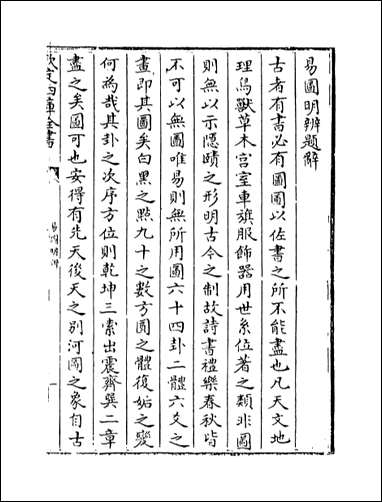 易圖明辨題辭
古者有書必有圖圖以佐書之所不能盡也凡天文地
理鳥獸草木宮室車旗服飾器用世系位著之類非圖
則無以示隱賾之形明古今之制故詩書禮樂春秋皆
不可以無圖唯易則無所用圖六十四卦二體六爻之
畫即其圖矣白黑之點九十之數方圓之體復姤之變
何為哉其卦之次序方位則乾坤三索出震齊巽二章
盡之矣圖可也安得有先天後天之別河圖之象自古
欽定四庫全書
易圖明辨
一